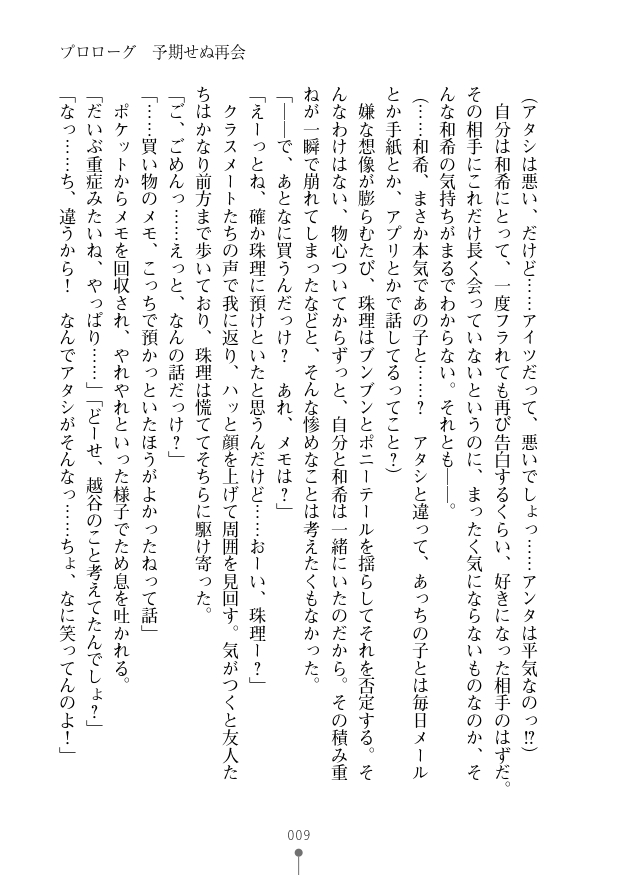 プロローグ　予期せぬ再会
（アタシは悪い、だけど……アイツだって、悪いでしょっ……アンタは平気なのっ⁉）
　自分は和希にとって、一度フラれても再び告白するくらい、好きになった相手のはずだ。
その相手にこれだけ長く会っていないというのに、まったく気にならないものなのか、そ
んな和希の気持ちがまるでわからない。それとも――。
（……和希、まさか本気であの子と……？　アタシと違って、あっちの子とは毎日メール
とか手紙とか、アプリとかで話してるってこと？）
　嫌な想像が膨らむたび、珠理はブンブンとポニーテールを揺らしてそれを否定する。そ
んなわけはない、物心ついてからずっと、自分と和希は一緒にいたのだから。その積み重
ねが一瞬で崩れてしまったなどと、そんな惨めなことは考えたくもなかった。
「――で、あとなに買うんだっけ？　あれ、メモは？」
「えーっとね、確か珠理に預けといたと思うんだけど……おーい、珠理ー？」
　クラスメートたちの声で我に返り、ハッと顔を上げて周囲を見回す。気がつくと友人た
ちはかなり前方まで歩いており、珠理は慌ててそちらに駆け寄った。
「ご、ごめんっ……えっと、なんの話だっけ？」
「……買い物のメモ、こっちで預かっといたほうがよかったねって話」
　ポケットからメモを回収され、やれやれといった様子でため息を吐かれる。
「だいぶ重症みたいね、やっぱり……」「どーせ、越谷のこと考えてたんでしょ？」
「なっ……ち、違うから！　なんでアタシがそんなっ……ちょ、なに笑ってんのよ！」
009